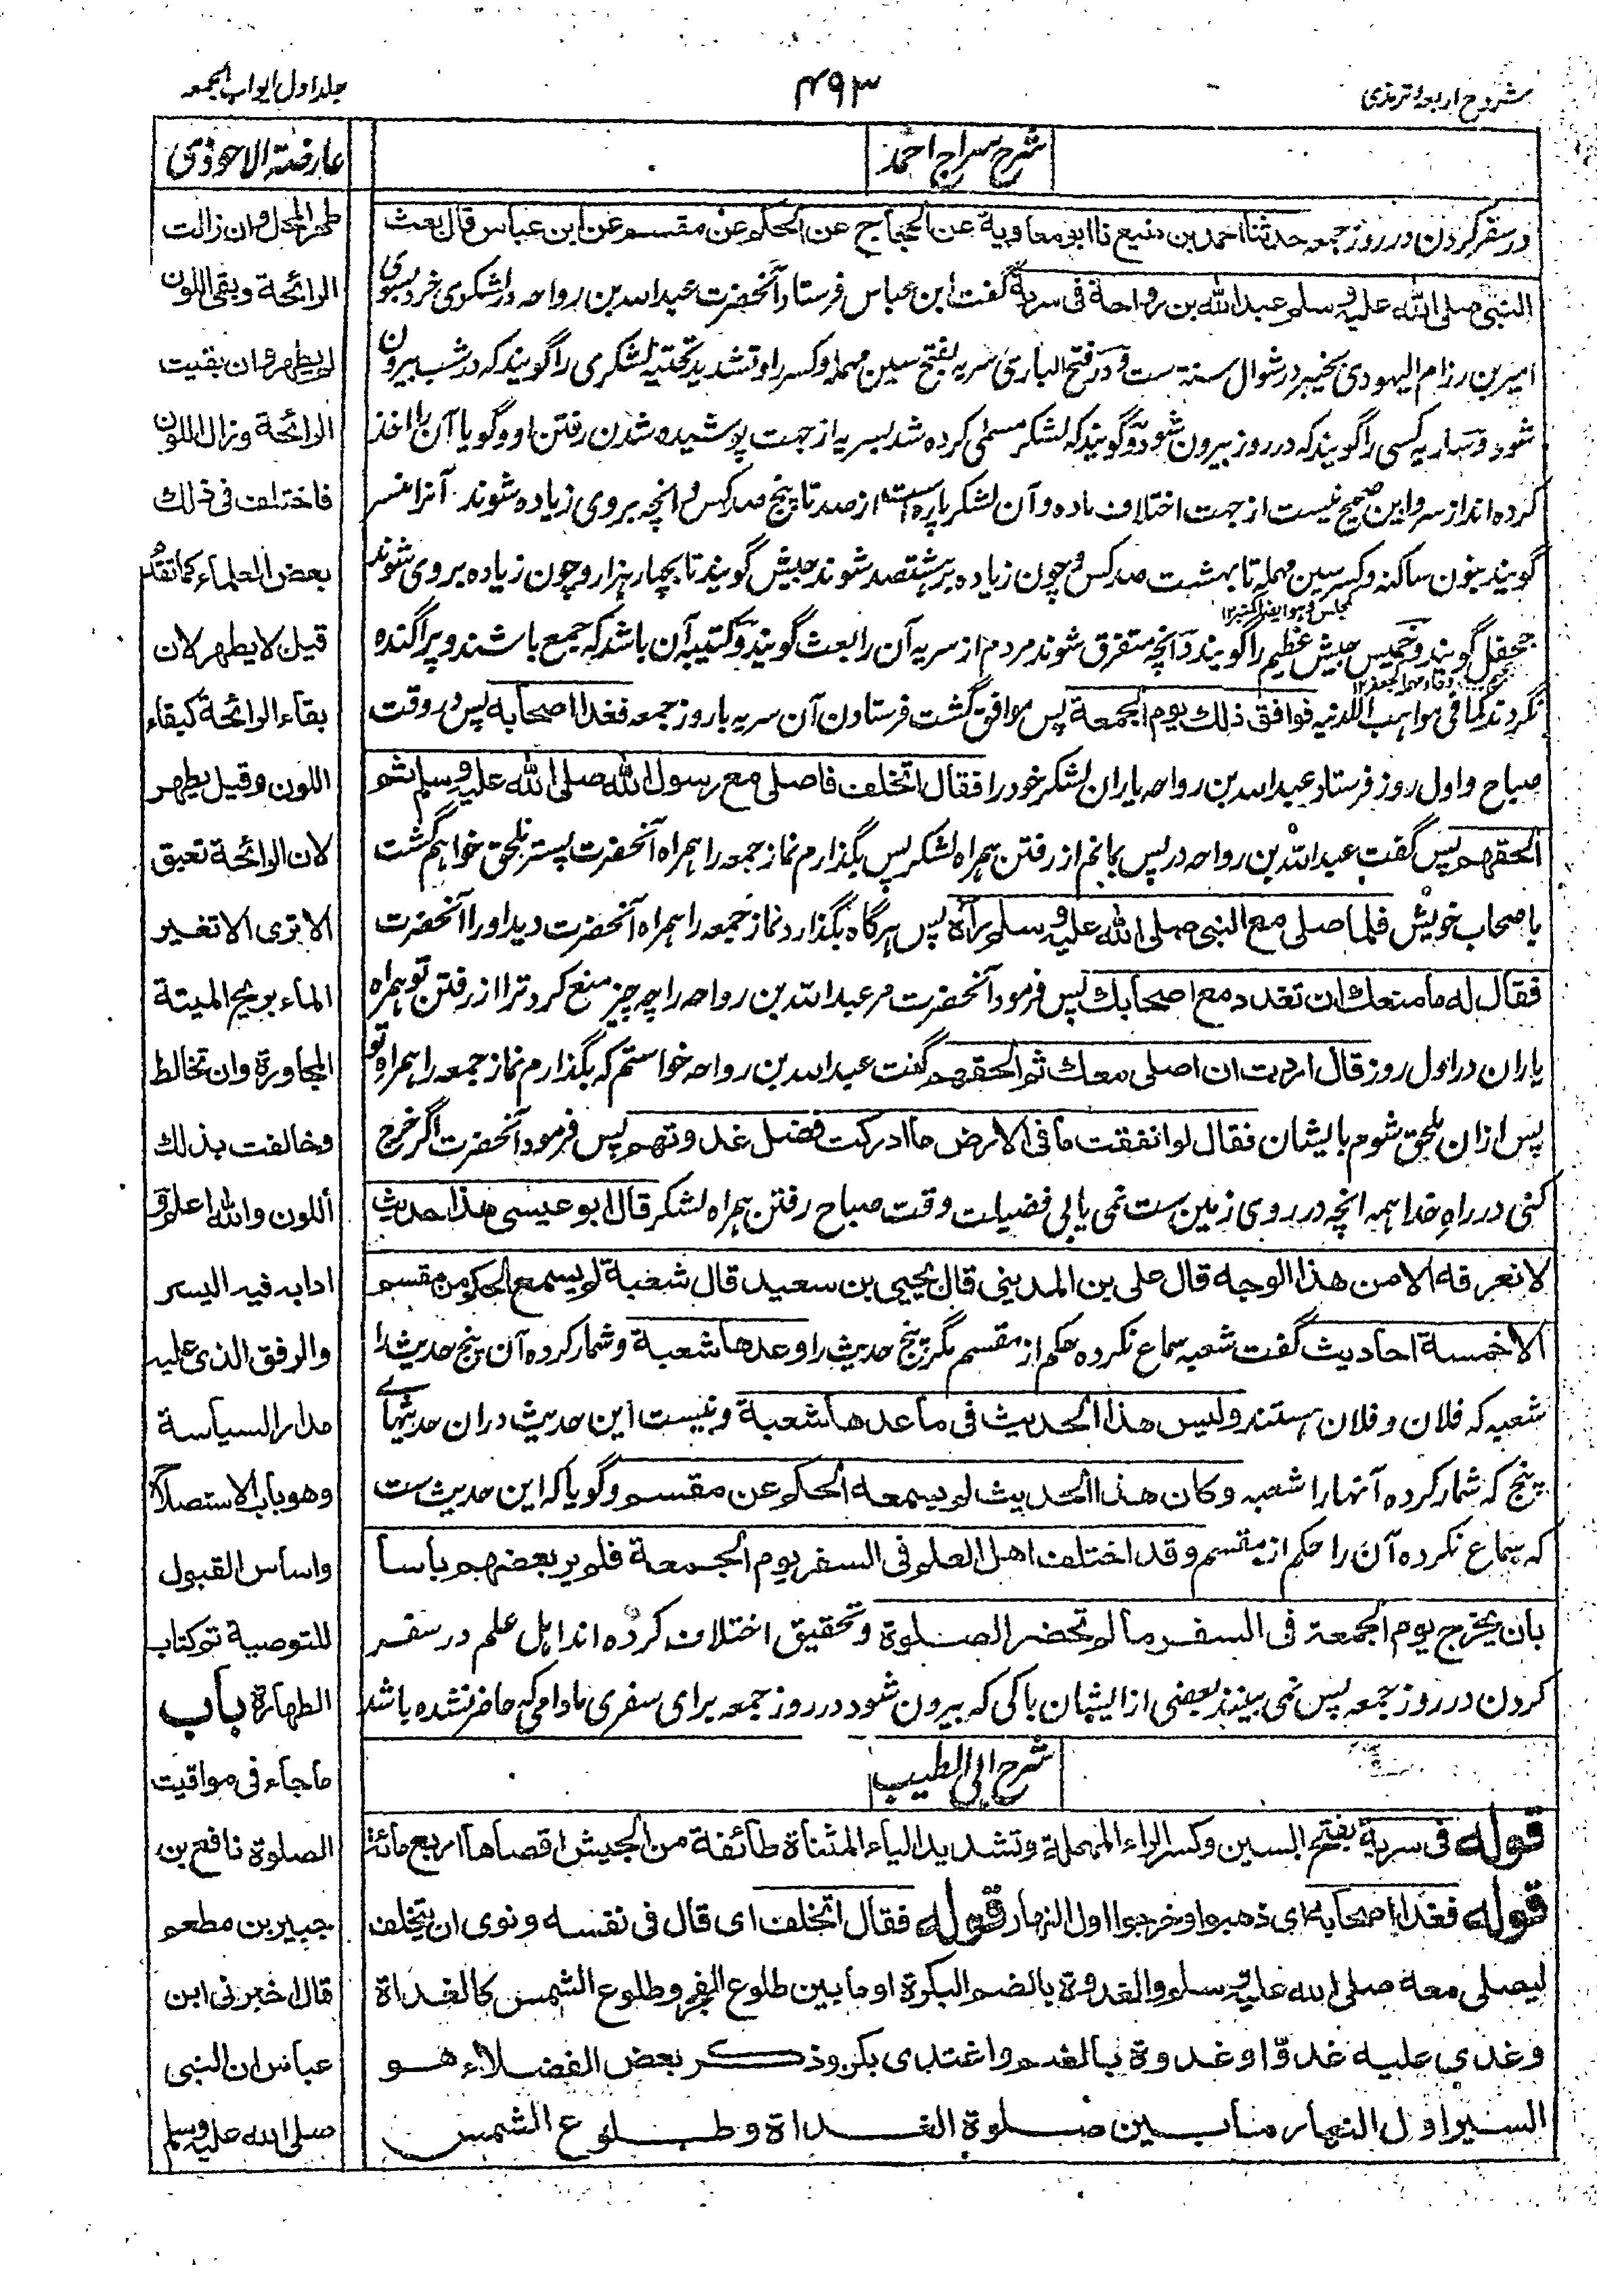 شروح اربعه ترمذی
۴۹۳
جلد اول ابواب الجمعه
شرح سراج احمد
در سفر کردن در روز جمعه حدثنا احمد بن منیع نا ابو معاویة عن الحجاج عن الحکم عن مقسم عن ابن عباس قال بعث
النبی صلی الله علیه وسلم عبد الله بن رواحة فی سریة گفت ابن عباس فرستاد آنحضرت عبد الله بن رواحه در لشکری خرد بسوی
امیر بن رزام الیهودی بخیبر در شوال سنة ست و در فتح الباری سریه بفتح سین مهمله و کسر را و تشدید تحتیه لشکری را گویند که در شب بیرون
شود و ساریه کسی را گویند که در روز بیرون شود و گویند که لشکر مسمی کرده شد بسریه از جهت پوشیده شدن رفتن او و گویا آن را اخذ
کرده اند از سر و این صحیح نیست از جهت اختلاف ماده و آن لشکر پاره است از صد تا پنج صد کس و انچه بر وی زیاده شوند آنرا منسر
گویند بنون ساکنه و کسر سین مهمله تا بهشت صد کس و چون زیاده بر هشتصد شوند جیش گویند تا بچهار هزار و چون زیاده بر وی شوند
جحفل گویند و خمیس جیش عظیم را گویند و آنچه متفرق شوند مردم از سریه آن را بعث گویند و کتیبه آن باشد که جمع باشند و پراگنده
نگردند کما فی مواهب اللدنیه فوافق ذلك یوم الجمعة پس موافق گشت فرستادن آن سریه با روز جمعه فغدا اصحابه پس در وقت
صباح و اول روز فرستاد عبد الله بن رواحه یاران لشکر خود را فقال اتخلف فاصلی مع رسول الله صلی الله علیه وسلم ثم
الحقهم پس گفت عبد الله بن رواحه در پس بمانم از رفتن همراه لشکر پس بگذارم نماز جمعه را همراه آنحضرت پستر ملحق خواهم گشت
باصحاب خویش فلما صلی مع النبی صلی الله علیه وسلم رآه پس هرگاه بگذارد نماز جمعه را همراه آنحضرت دید او را آنحضرت
فقال له ما منعك ان تغدو مع اصحابك پس فرمود آنحضرت مر عبد الله بن رواحه را چه چیز منع کرد ترا از رفتن تو همراه
یاران در اول روز قال اردت ان اصلی معك ثم الحقهم گفت عبد الله بن رواحه خواستم که بگذارم نماز جمعه را همراه تو
پس ازان ملحق شوم بایشان فقال لو انفقت ما فی الارض ما ادرکت فضل غدوتهم پس فرمود آنحضرت اگر خرچ
کنی در راه خدا همه انچه در روی زمین ست نمی یابی فضیلت وقت صباح رفتن همراه لشکر قال ابو عیسی هذا حدیث
لا نعرفه الا من هذا الوجه قال علی بن المدینی قال یحیی بن سعید قال شعبة لم یسمع الحکم من مقسم
الا خمسة احادیث گفت شعبه سماع نکرده حکم از مقسم مگر پنج حدیث را وعدها شعبة و شمار کرده آن پنج حدیث را
شعبه که فلان و فلان هستند ولیس هذا الحدیث فی ما عدها شعبة و نیست این حدیث دران حدیثهای
پنج که شمار کرده آنها را شعبه وکان هذا الحدیث لم یسمعه الحکم عن مقسم و گویا که این حدیث ست
که سماع نکرده آن را حکم از مقسم وقد اختلف اهل العلم فی السفر یوم الجمعة فلم یر بعضهم باسا
بان یخرج یوم الجمعة فی السفر ما لم تحضر الصلوة و تحقیق اختلاف کرده اند اهل علم در سفر
کردن در روز جمعه پس نمی بینند بعضی از ایشان باکی که بیرون شود در روز جمعه برای سفری مادامی که حاضر نشده باشد
شرح ابی الطیب
قوله فی سریة بفتح السین وکسر الراء المهملة وتشدید الیاء المثناة طائفة من الجیش اقصاها اربع مائة
قوله فغدا اصحابه ای ذهبوا وخرجوا اول النهار قوله فقال اتخلف ای قال فی نفسه ونوی ان یتخلف
لیصلی معه صلی الله علیه وسلم والغدوة بالضم البکرة او ما بین طلوع الفجر وطلوع الشمس کالغداة
وغدی علیه غدوّا وغدوة بالضم واغتدی بکر وذکر بعض الفضلاء هو
السیر اول النهار ما بین صلوة الغداة وطلوع الشمس
عارضة الاحوذی
طهر المحل وان زالت
الرائحة وبقی اللون
لم یطهر وان بقیت
الرائحة وزال اللون
فاختلف فی ذلك
بعض العلماء کما تقدم
قیل لا یطهر لان
بقاء الرائحة کبقاء
اللون وقیل یطهر
لان الرائحة تعبق
الا تری الا تغیر
الماء بریح المیتة
المجاورة وان تخالط
وخالفت بذلك
اللون والله اعلم و
ادابه فیه الیسر
والرفق الذی علیه
مدار السیاسة
وهو باب الاستصلاح
واساس القبول
للتوصیة تم کتاب
الطهارة باب
ما جاء فی مواقیت
الصلوة نافع بن
جبیر بن مطعم
قال اخبرنی ابن
عباس ان النبی
صلی الله علیه وسلم